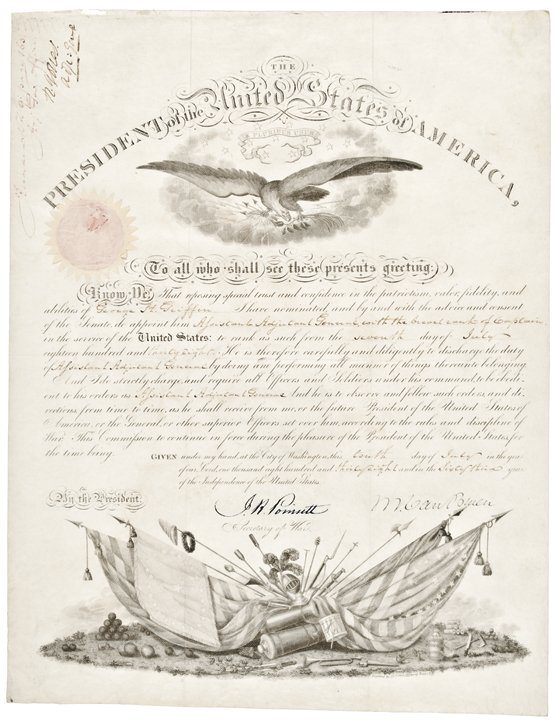 THE
PRESIDENT of the United States of AMERICA,
E PLURIBUS UNUM
To all who shall see these presents greeting:
Know Ye, That reposing special trust and confidence in the patriotism, valor, fidelity, and
abilities of George H. Griffin I have nominated, and by and with the advice and consent
of the Senate, do appoint him Assistant Adjutant General, with the brevet rank of Captain
in the service of the United States: to rank as such from the seventh day of July
eighteen hundred and thirty eight. He is therefore carefully and diligently to discharge the duty
of Assistant Adjutant General by doing and performing all manner of things thereunto belonging.
And I do strictly charge, and require all Officers and Soldiers under his command, to be obedi-
ent to his orders as Assistant Adjutant General And he is to observe and follow such orders, and di-
rections, from time to time, as he shall receive from me, or the future President of the United States of
America, or the General, or other superior Officers set over him, according to the rules and discipline of
War. This Commission to continue in force during the pleasure of the President of the United States, for
the time being.
GIVEN under my hand, at the City of Washington, this tenth day of July in the year
of our Lord, one thousand eight hundred and thirty eight and in the Sixty third year
of the Independence of the United States.
By the President,
M. Van Buren
J. R. Poinsett
Secretary of War.